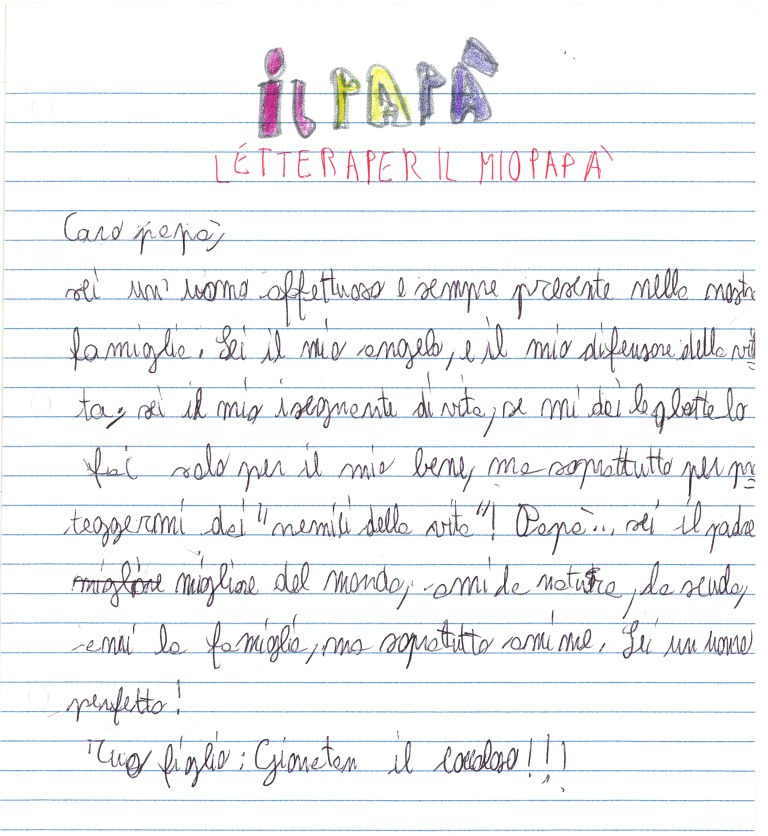 IL PAPÀ
LÉTTERA PER IL MIO PAPA'
Caro papà,
sei un' uomo affettuoso e sempre presente nella nostr
famiglia. Sei il mio angelo, e il mio difensore della vi
ta, sei il mio insegnante di vita, se mi dai le botte lo
fai solo per il mio bene, ma soprattutto per pr
teggermi dai "nemici della vita"! Papà... sei il padre
migliore migliore del mondo, ami la natura, la scuola,
ami la famiglia, ma sopratutto ami me. Sei un uomo
perfetto!
Tuo figlio: Gionatan il !!!